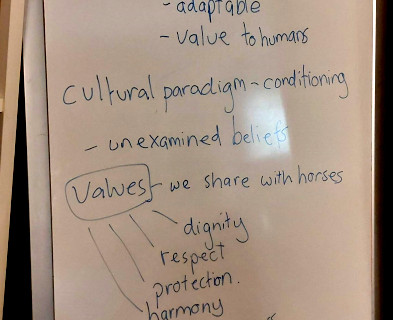 - adaptable
- value to humans
cultural paradigm - conditioning
- unexamined beliefs
values - we share with horses
dignity
respect
protection.
harmony